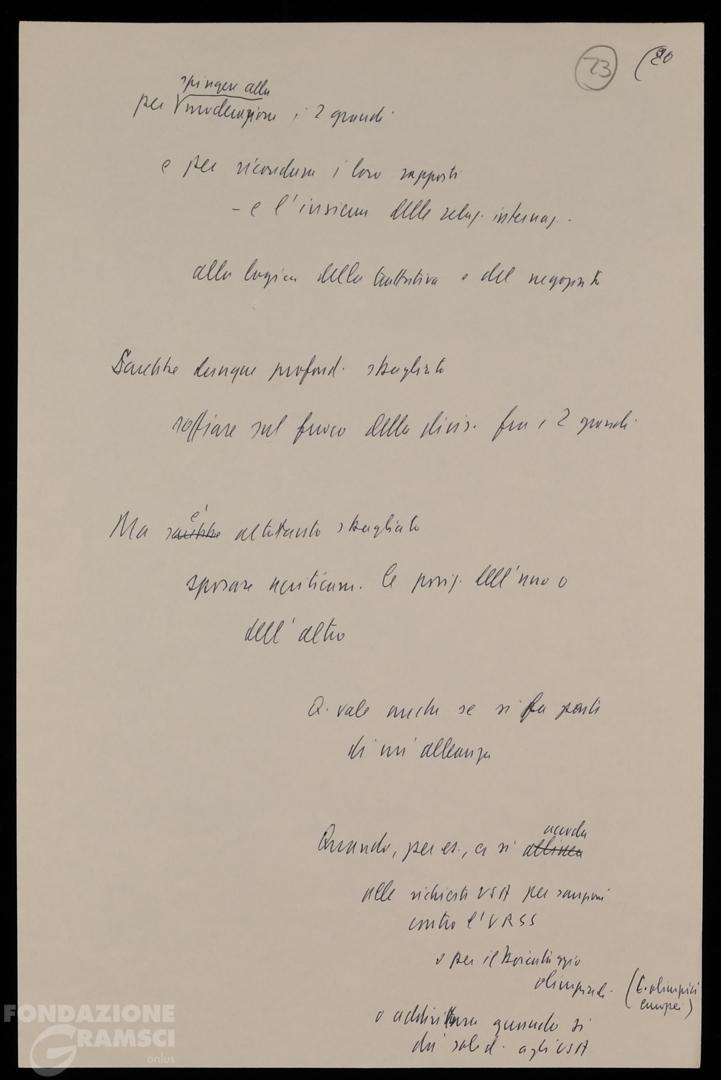 23 (20
spingere alla
per moderazione i 2 grandi
e per ricondurre i loro rapporti
- e l'insieme delle relaz. internaz.
alla logica della trattativa e del negoziato
Sarebbe dunque profond. sbagliato
soffiare sul fuoco della divis. fra i 2 grandi
è
Ma sarebbe altrettanto sbagliato
sposare acriticam. le posiz. dell'uno o
dell'altro
Q. vale anche se si fa parte
di un'alleanza
accoda
Quando, per es., ci si allinea
alle richieste USA per sanzioni
contro l'URSS
o per il boicottaggio
olimpiadi. (C. olimpici
europei)
o addirittura quando si
dà solid. agli USA
FONDAZIONE
GRAMSCI
onlus